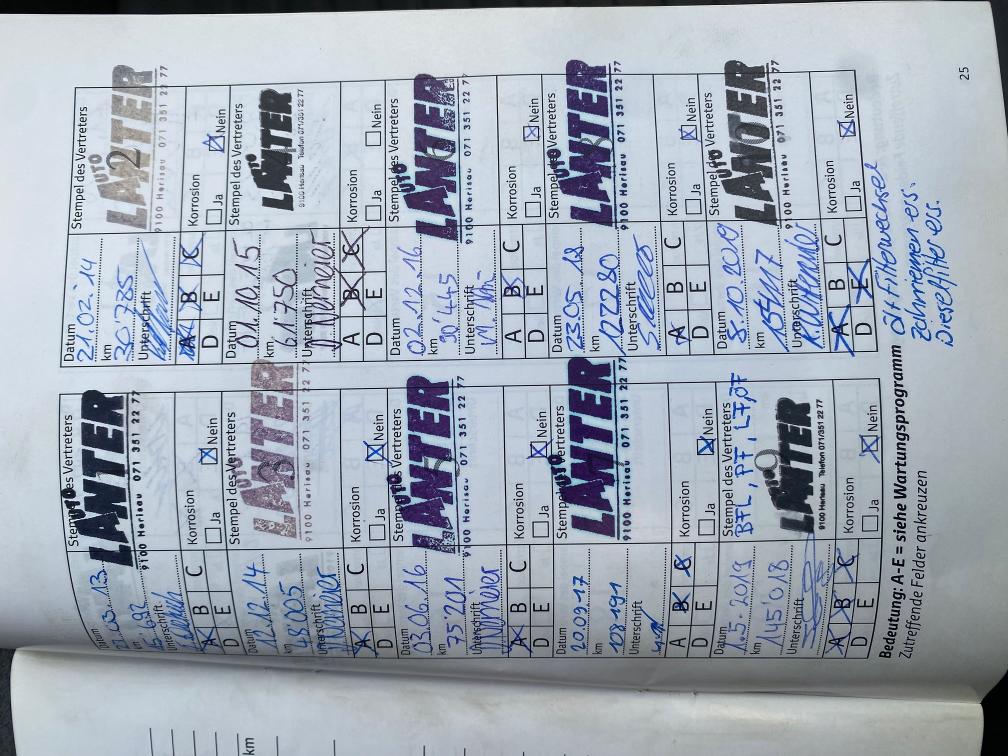 Datum
Stempel des Vertreters
AUTO
LANTER
9100 Herisau 071 351 22 77
km
Unterschrift
A B C Korrosion
D E Ja Nein
Datum
12.12.14
Stempel des Vertreters
AUTO
LANTER
9100 Herisau 071 351 22 77
km
48'005
Unterschrift
A B C Korrosion
D E Ja Nein
Datum
03.06.16
Stempel des Vertreters
AUTO
LANTER
9100 Herisau 071 351 22 77
km
75'201
Unterschrift
A B C Korrosion
D E Ja Nein
Datum
20.09.17
Stempel des Vertreters
AUTO
LANTER
9100 Herisau 071 351 22 77
km
108'191
Unterschrift
A B C Korrosion
D E Ja Nein
Datum
1.5.2019
Stempel des Vertreters
BFL, PF, LF, ÖF
AUTO
LANTER
9100 Herisau Telefon 071/351 22 77
km
145'018
Unterschrift
A B C Korrosion
D E Ja Nein
Datum
21.02.14
Stempel des Vertreters
AUTO
LANTER
9100 Herisau 071 351 22 77
km
30785
Unterschrift
A B C Korrosion
D E Ja Nein
Datum
01.10.15
Stempel des Vertreters
AUTO
LANTER
9100 Herisau Telefon 071/351 22 77
km
61'750
Unterschrift
A B C Korrosion
D E Ja Nein
Datum
02.12.16
Stempel des Vertreters
AUTO
LANTER
9100 Herisau 071 351 22 77
km
90'445
Unterschrift
A B C Korrosion
D E Ja Nein
Datum
23.05.18
Stempel des Vertreters
AUTO
LANTER
9100 Herisau 071 351 22 77
km
122280
Unterschrift
A B C Korrosion
D E Ja Nein
Datum
8.10.2019
Stempel des Vertreters
AUTO
LANTER
9100 Herisau 071 351 22 77
km
Unterschrift
A B C Korrosion
D E Ja Nein
Bedeutung: A-E = siehe Wartungsprogramm
Zutreffende Felder ankreuzen
Öl + Filterwechsel
Zahnriemen ers.
Dieselfilter ers.
25
km